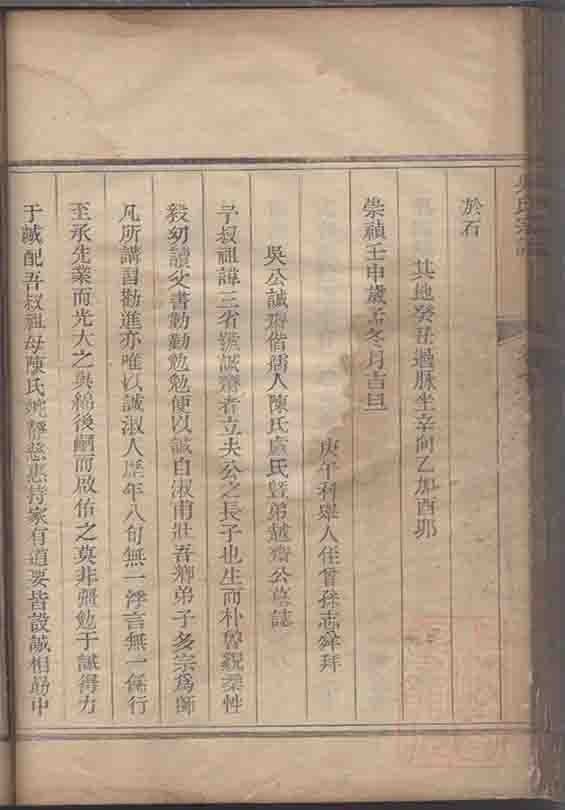 於石
其地癸丑過脉坐辛向乙加酉卯
崇禎壬申歲孟冬月吉旦
庚午科舉人任曾孫志拜
吳公誠齋偕孺人陳氏盧氏暨弟越齋公墓誌
予叔祖諱三省號誠齋者立夫公之長子也生而朴魯貌柔性
毅幼讀父書勤勤勉勉便以誠自淑甫壯吾鄉弟子多宗為師
凡所講習勸進亦唯以誠淑人歷年八旬無一浮言無一偽行
至承先業而光大之與綿後嗣而啟佑之莫非彊勉于誠得力
于誠配吾叔祖母陳氏婉靜慈惠持家有道要皆設誠相勗中
吳氏宗譜